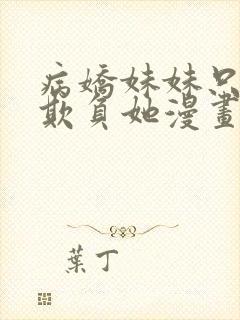 病嬌妹妹只
欺負她漫畫
葉丁